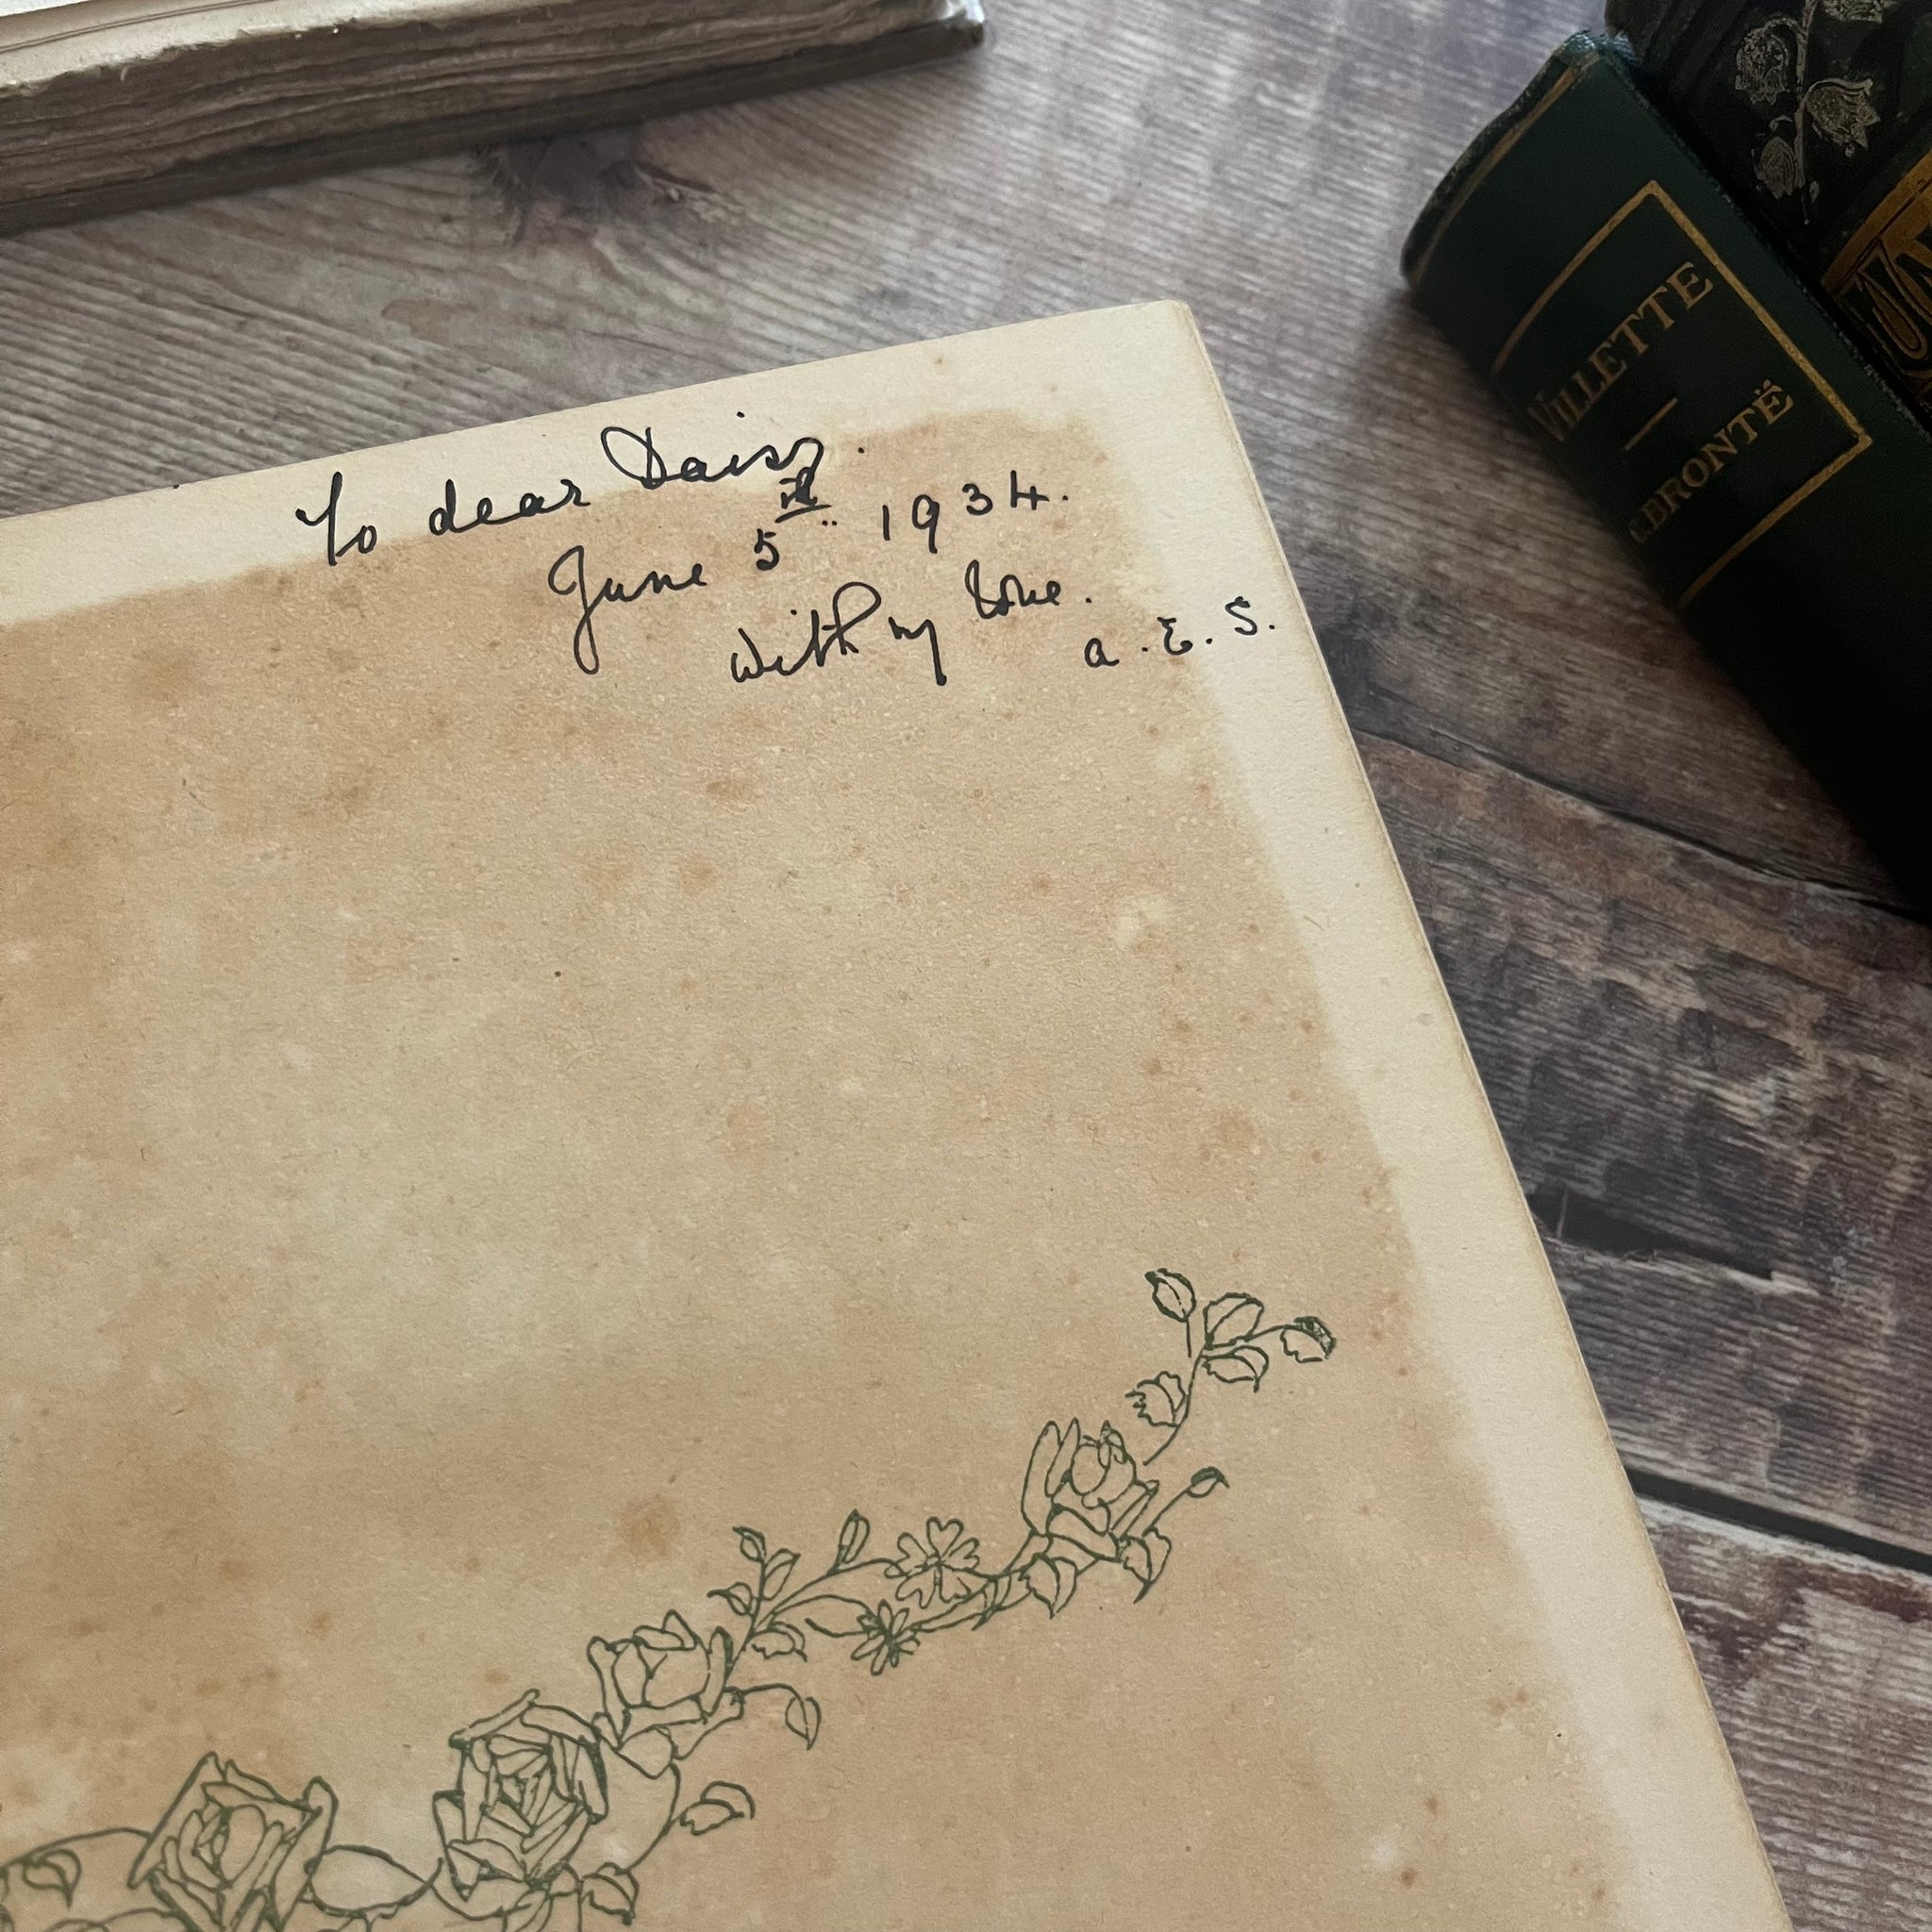 To dear Daisy.
June 5th 1934.
With my love.
a. E. S.
VILLETTE
C. BRONTË